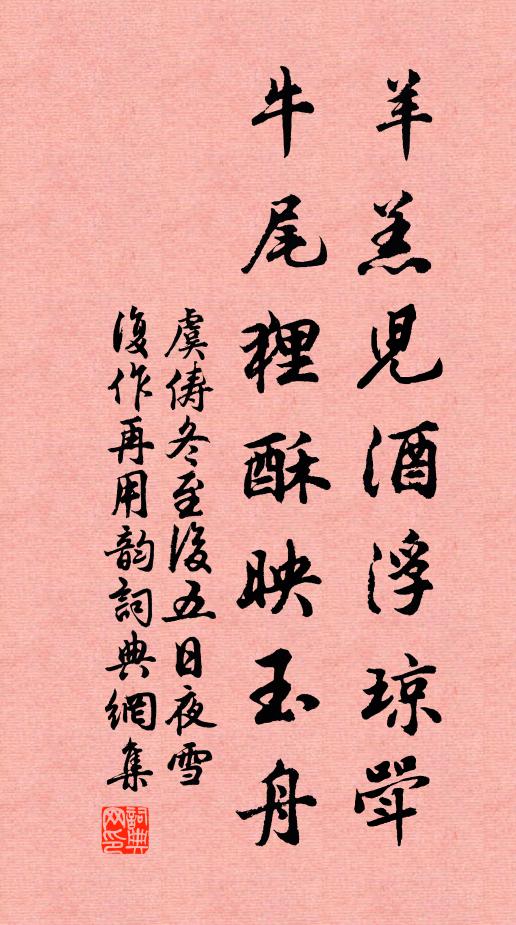 羊羔児酒浮琼斝
牛尾狸酥映玉舟
虞俦冬至後五日夜雪
復作再用韵詞典網集
詞典网印